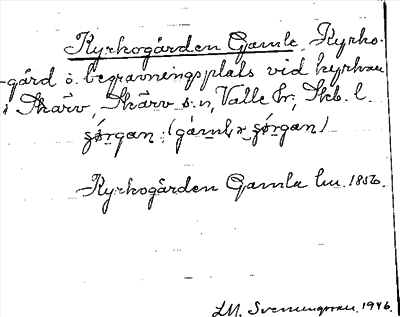 Kyrkogården Gamle, Kyrko-
-gård o. begravningsplats vid kyrkan
i Skärv, Skärv s:n, Valle hr, Skb. l.
Kyrkogården Gamla lm. 1856.
L.M. Svenungsson. 1946.